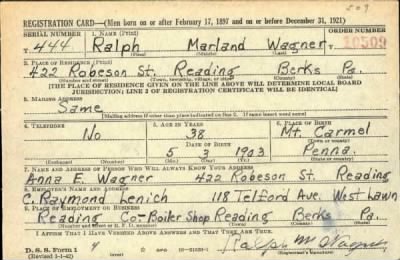 509
REGISTRATION CARD—(Men born on or after February 17, 1897 and on or before December 31, 1921)
SERIAL NUMBER 1. NAME (Print) ORDER NUMBER
T 444 Ralph Marland Wagner 10509
(First) (Middle) (Last)
2. PLACE OF RESIDENCE (Print)
422 Robeson St. Reading Berks Pa.
(Number and street) (Town, township, village, or city) (County) (State)
[THE PLACE OF RESIDENCE GIVEN ON THE LINE ABOVE WILL DETERMINE LOCAL BOARD
JURISDICTION; LINE 2 OF REGISTRATION CERTIFICATE WILL BE IDENTICAL]
3. MAILING ADDRESS
Same
[Mailing address if other than place indicated on line 2. If same insert word same]
4. TELEPHONE 5. AGE IN YEARS 6. PLACE OF BIRTH
No 38 Mt. Carmel
DATE OF BIRTH (Town or county)
5 3 1903 Penna.
(Exchange) (Number) (Mo.) (Day) (Yr.) (State or country)
7. NAME AND ADDRESS OF PERSON WHO WILL ALWAYS KNOW YOUR ADDRESS
Anna E. Wagner 422 Robeson St. Reading
8. EMPLOYER'S NAME AND ADDRESS
C. Raymond Lenich 118 Telford Ave. West Lawn
9. PLACE OF EMPLOYMENT OR BUSINESS
Reading Co-Boiler Shop Reading Berks Pa.
(Number and street or R. F. D. number) (Town) (County) (State)
I AFFIRM THAT I HAVE VERIFIED ABOVE ANSWERS AND THAT THEY ARE TRUE.
D. S. S. Form 1 4 GPO Ralph M Wagner
(Revised 1-1-42)